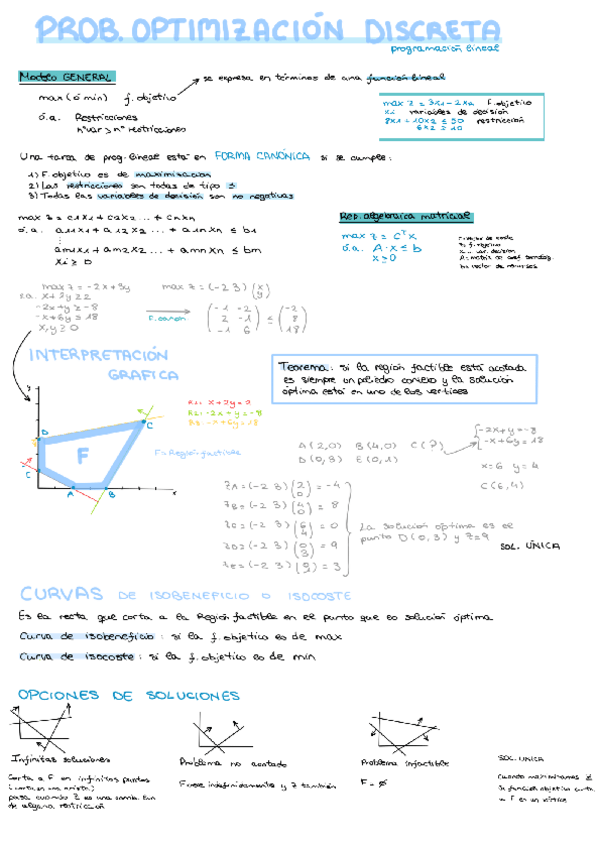 PROB. OPTIMIZACIÓN DISCRETA
programación lineal
Modelo GENERAL
se expresa en términos de una función lineal
max (ó min) f. objetivo
s.a. Restricciones
nºvar > nº restricciones
max z = 3x1 - 2x2 F. objetivo
xi variables de decisión
8x1 + 10x2 ≤ 50 restricción
6x2 ≥ 10
Una tarea de prog. lineal está en FORMA CANÓNICA si se cumple:
1) F. objetivo es de maximización
2) Las restricciones son todas de tipo ≤
3) Todas las variables de decisión son no negativas
max z = c1x1 + c2x2 ... + cnxn
s.a. a11x1 + a12x2 ... + a1nxn ≤ b1
am1x1 + am2x2 ... + amnxn ≤ bm
xi ≥ 0
Rep. algebraica matricial
max z = cᵀx
s.a. A·x ≤ b
x ≥ 0
max z = -2x + 3y
s.a. x + 2y ≥ 2
-2x + y ≥ -8
-x + 6y ≤ 18
x, y ≥ 0
F. canón
max z = (-2 3) (x y)
(-1 -2
2 -1
-1 6) ≤ (-2
8
18)
INTERPRETACIÓN
GRAFICA
Teorema: si la región factible está acotada
es siempre un poliedro convexo y la solución
óptima está en uno de los vértices
R1: x + 2y = 2
R2: -2x + y = -8
R3: -x + 6y = 18
F = Región factible
F
A
B
C
D
A (2,0) B (4,0) C (?)
D (0,3) E (0,1)
-2x + y = -8
-x + 6y = 18
x = 6 y = 4
C (6,4)
zA = (-2 3) (2 0) = -4
zB = (-2 3) (4 0) = 8
zC = (-2 3) (6 4) = 0
zD = (-2 3) (0 3) = 9
zE = (-2 3) (0 1) = 3
La solución óptima es el
punto D (0,3) y z = 9
SOL. ÚNICA
CURVAS DE ISOBENEFICIO O ISOCOSTE
Es la recta que corta a la Región factible en el punto que es solución óptima
Curva de isobeneficio: si la f. objetivo es de max
Curva de isocoste: si la f. objetivo es de min
OPCIONES DE SOLUCIONES
Infinitas soluciones
Corta a F en infinitos puntos
(corta en una arista)
pasa cuando z es una comb. lin
de alguna restricción
Problema no acotado
F crece indefinidamente y z también
Problema infactible
F = ∅
SOL. ÚNICA
Cuando maximizamos z
la función objetivo corta
a F en un vértice